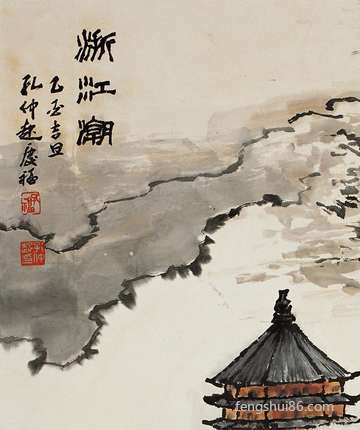 浙江潮
乙亥吉旦
孔仲起
fengshui86.com